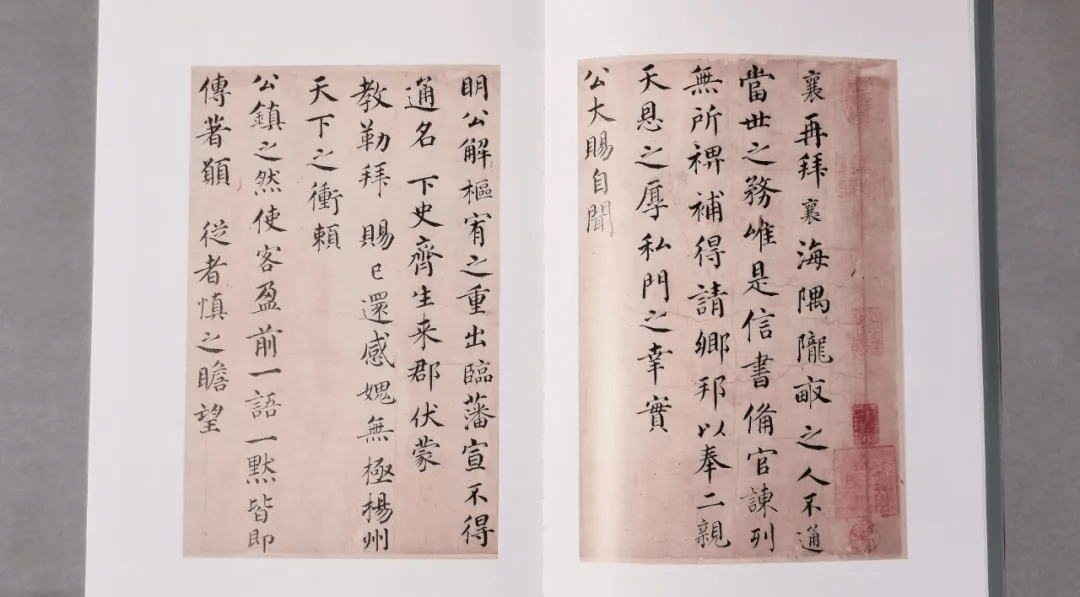 襄再拜襄海隅隴畝之人不通
當世之務唯是信書備官諫列
無所裨補得請鄉邦以奉二親
天恩之厚私門之幸實
公大賜自聞
明公解樞宥之重出臨藩宣不得
通名下史齊生来郡伏蒙
教勒拜賜已還感媿無極楊州
天下之衝賴
公鎮之然使客盈前一語一默皆即
傳著願從者慎之瞻望